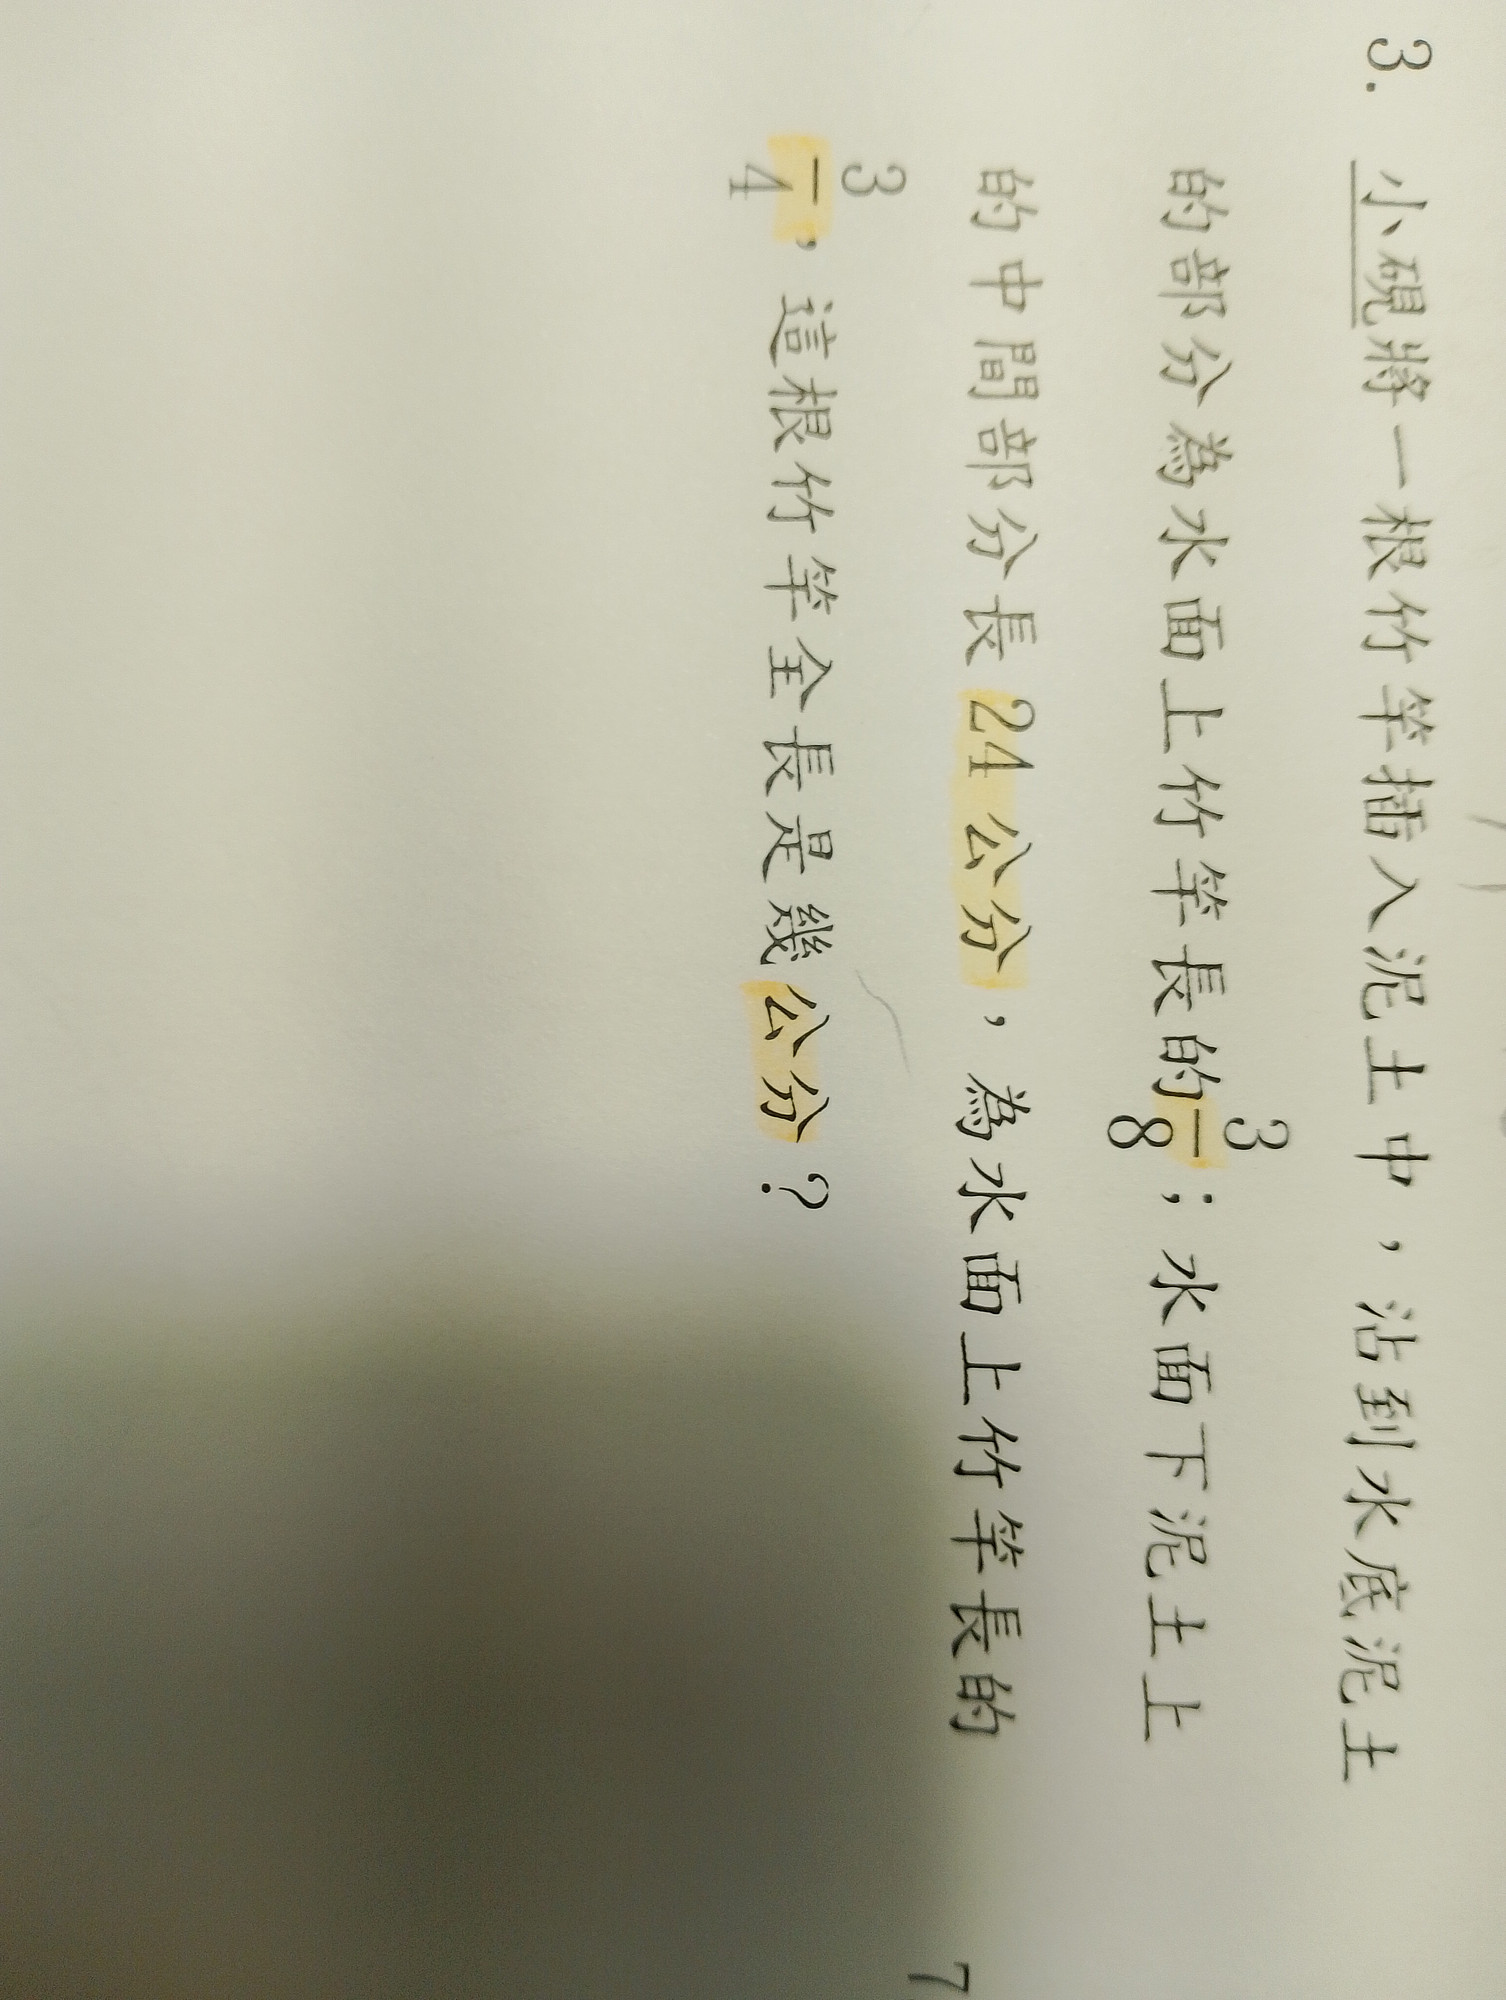 3. 小硯將一根竹竿插入泥土中，沾到水底泥土
的部分為水面上竹竿長的3/8；水面下泥土上
的中間部分長24公分，為水面上竹竿長的
3/4，這根竹竿全長是幾公分？
7